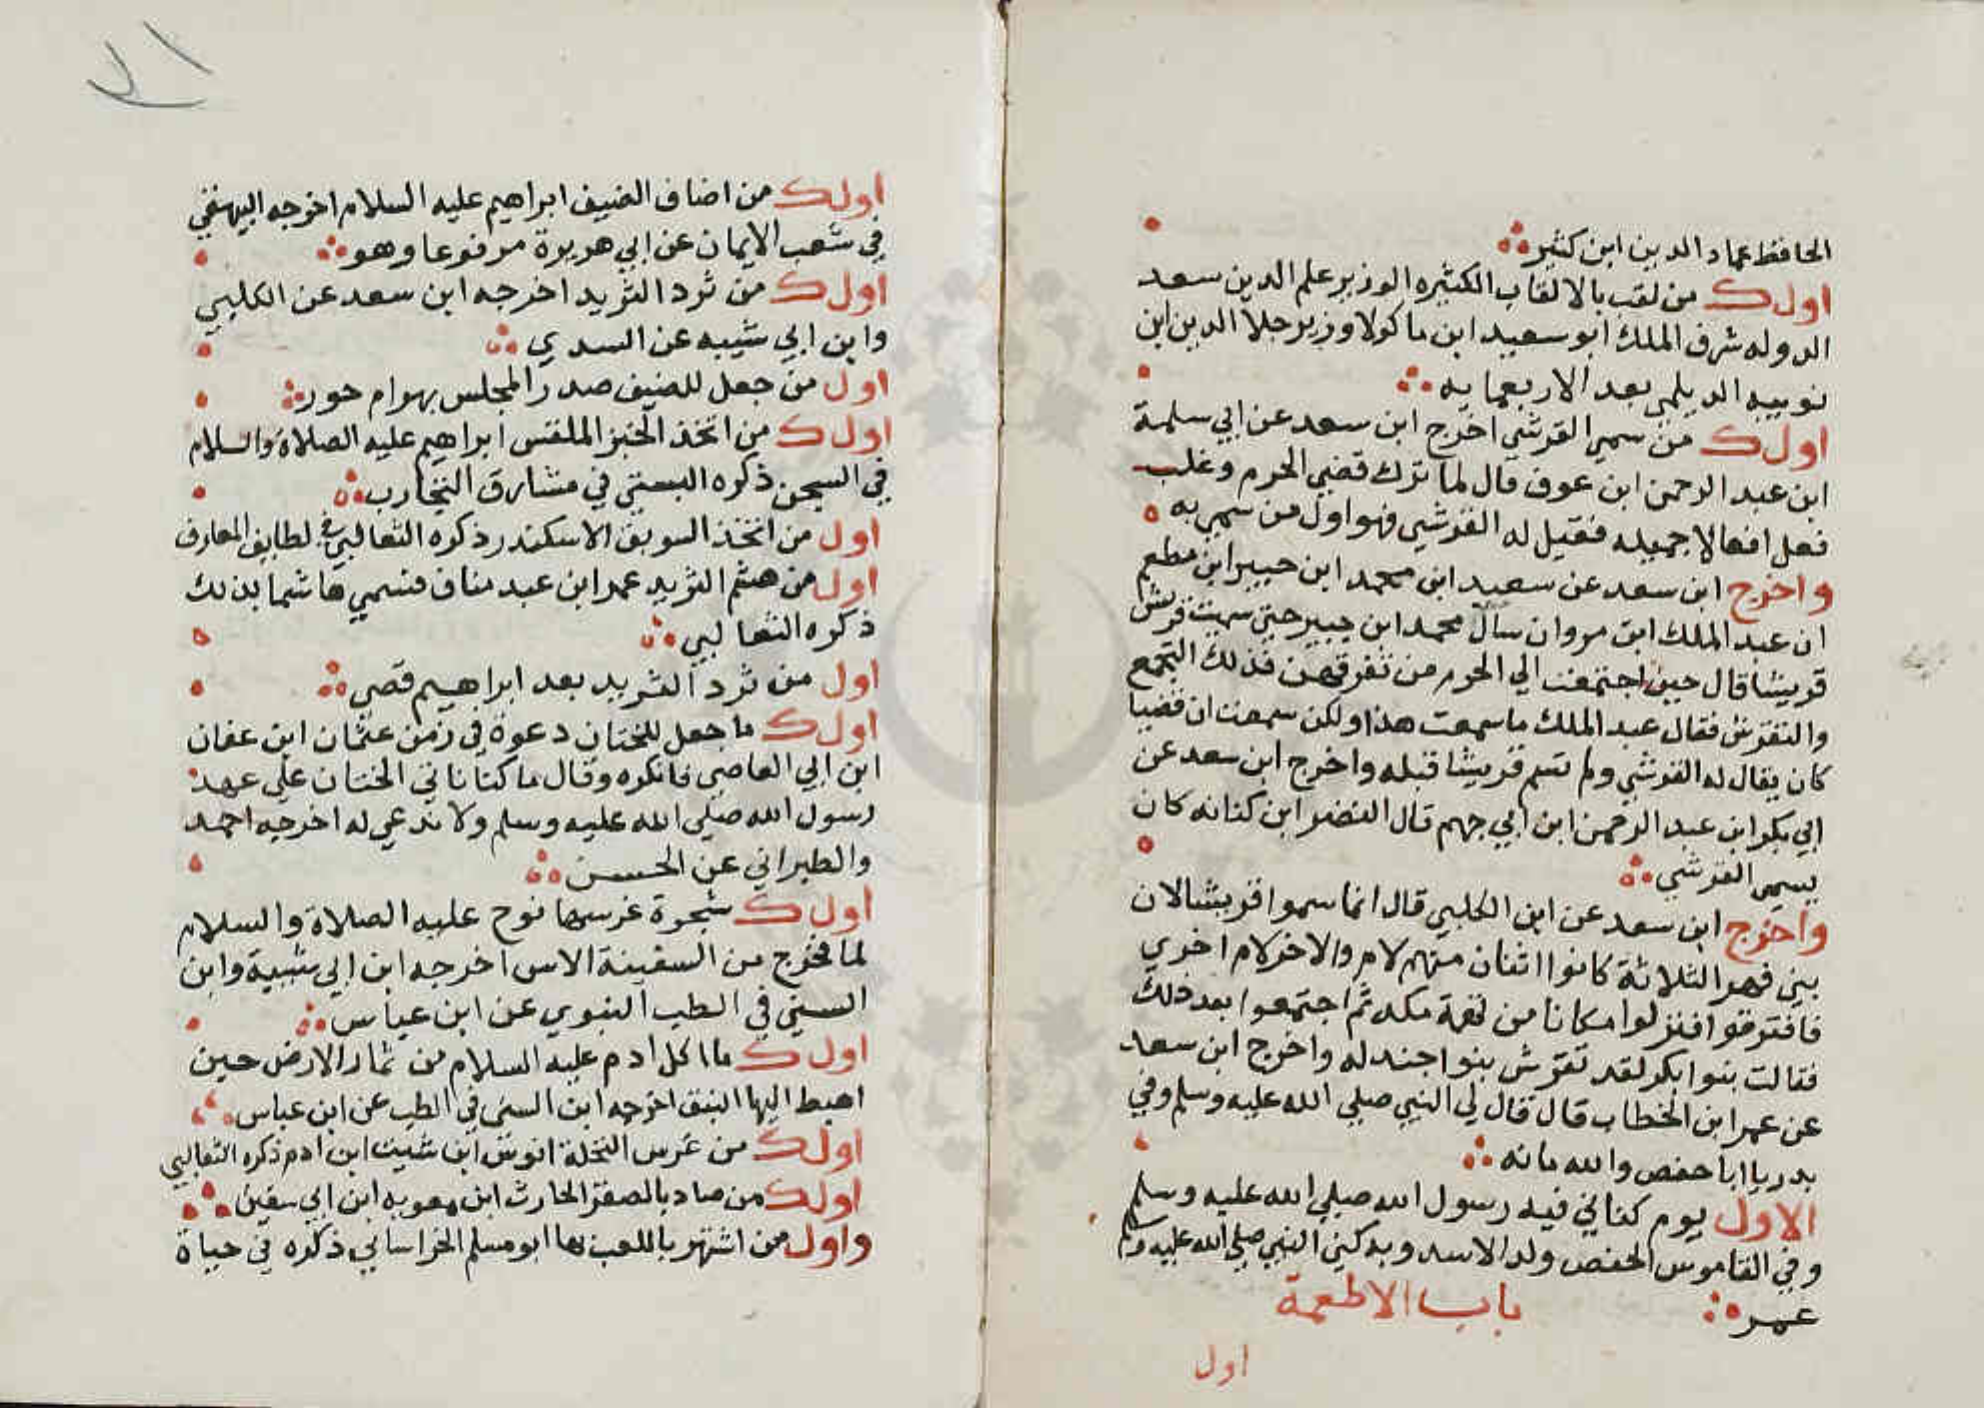 الحافظ عماد الدين ابن كثير
اول من لقب بالالقاب الكثيره الوزير علم الدين سعد
الدوله شرف الملك ابو سعيد ابن ماكولا وزير جلا الدين ابن
نوبيه الديلمي بعد الاربعمايه
اول من سمي القرشي اخرج ابن سعد عن ابي سلمة
ابن عبد الرحمن ابن عوف قال لما ترك قضي الحرم وغلب
فعل افعالا جميله فقيل له القرشي فهو اول من سمي به
واخرج ابن سعد عن سعيد ابن محمد ابن جبير ابن مطعم
ان عبد الملك ابن مروان سال محمد ابن جبير حتي سميت قريش
قريشا قال حين اجتمعت الي الحرم من تفرقهن فذلك التجمع
والتقرش فقال عبد الملك ما سمعت هذا ولكن سمعت ان قضيا
كان يقال له القرشي ولم تسم قريشا قبله واخرج ابن سعد عن
ابي بكر ابن عبد الرحمن ابن ابي جهم قال النضر ابن كنانه كان
يسمي القرشي
واخرج ابن سعد عن ابن الكلبي قال انما سموا قريشا لان
بني فهر الثلاثة كانوا اثنان منهم لام والاخر لام اخري
فافترقوا فنزلوا مكانا من تهمة مكه ثم اجتمعوا بعد ذلك
فقالت بنوا بكر لقد تقرش بنوا جندله واخرج ابن سعد
عن عمر ابن الخطاب قال قال لي النبي صلي الله عليه وسلم وفي
بدر يا ابا حفص والله بانه
الاول يوم كناني فيه رسول الله صلي الله عليه وسلم
وفي القاموس الحفص ولد الاسد وبه كني النبي صلي الله عليه وسلم
عمر باب الاطعمة
اول
اول من اضاف الضيف ابراهيم عليه السلام اخرجه البيهقي
في شعب الايمان عن ابي هريرة مرفوعا وهو
اول من ثرد الثريد اخرجه ابن سعد عن الكلبي
وابن ابي شيبه عن السدي
اول من جعل للضيف صدر المجلس بهرام حور
اول من اتخذ الخبز الملقس ابراهيم عليه الصلاة والسلام
في السجن ذكره البستي في مشارق التجارب
اول من اتخذ السويق الاسكندر ذكره الثعالبي في لطايف المعارف
اول من هشم الثريد عمر ابن عبد مناف فسمي هاشما بذلك
ذكره الثعالبي
اول من ثرد الثريد بعد ابراهيم قصي
اول ما جعل للختان دعوة في زمن عثمان ابن عفان
ابن ابي العاصي فانكره وقال ما كنا ناتي الختان علي عهد
رسول الله صلي الله عليه وسلم ولا ندعي له اخرجه احمد
والطبراني عن الحسن
اول شجرة غرسها نوح عليه الصلاة والسلام
لما خرج من السفينة الاس اخرجه ابن ابي شيبة وابن
السني في الطب النبوي عن ابن عباس
اول ما اكل ادم عليه السلام من ثمار الارض حين
اهبط اليها النبق اخرجه ابن السني في الطب عن ابن عباس
اول من غرس النخلة انوش ابن شيث ابن ادم ذكره الثعالبي
اول من صاد بالصقر الحارث ابن معويه ابن ابي سفين
واول من اشتهر باللعب بها ابو مسلم الخراساني ذكره في حياة